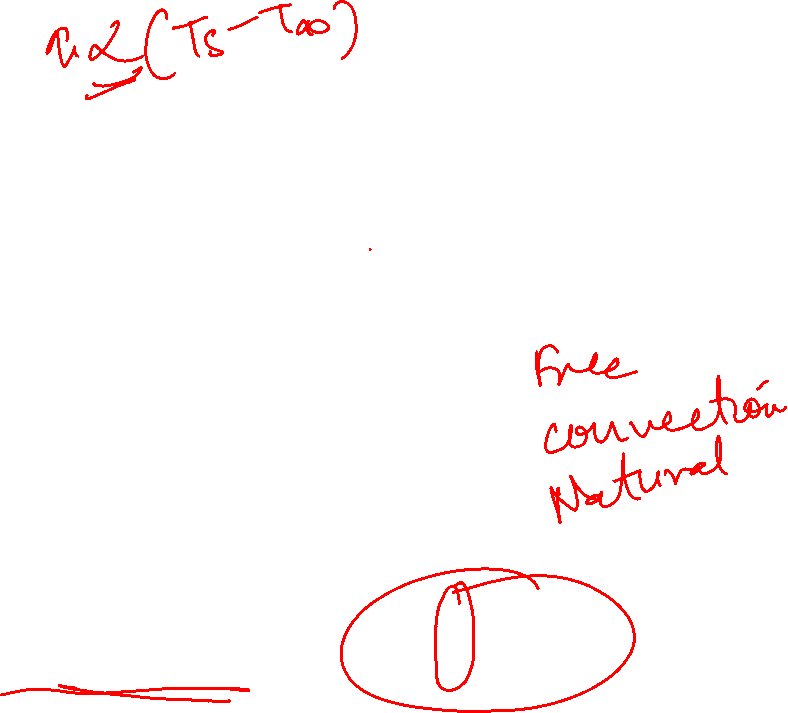 α(Ts-T∞)
Free
convection
Natural